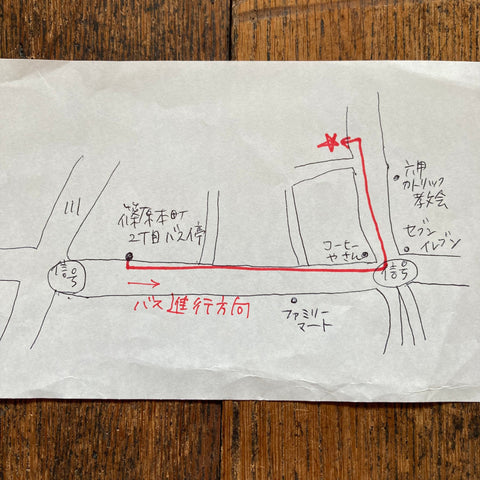 六甲
カトリック
教会
川
篠原本町
2丁目バス停
コーヒー
やさん
セブン
イレブン
信号
信号
バス進行方向
ファミリー
マート